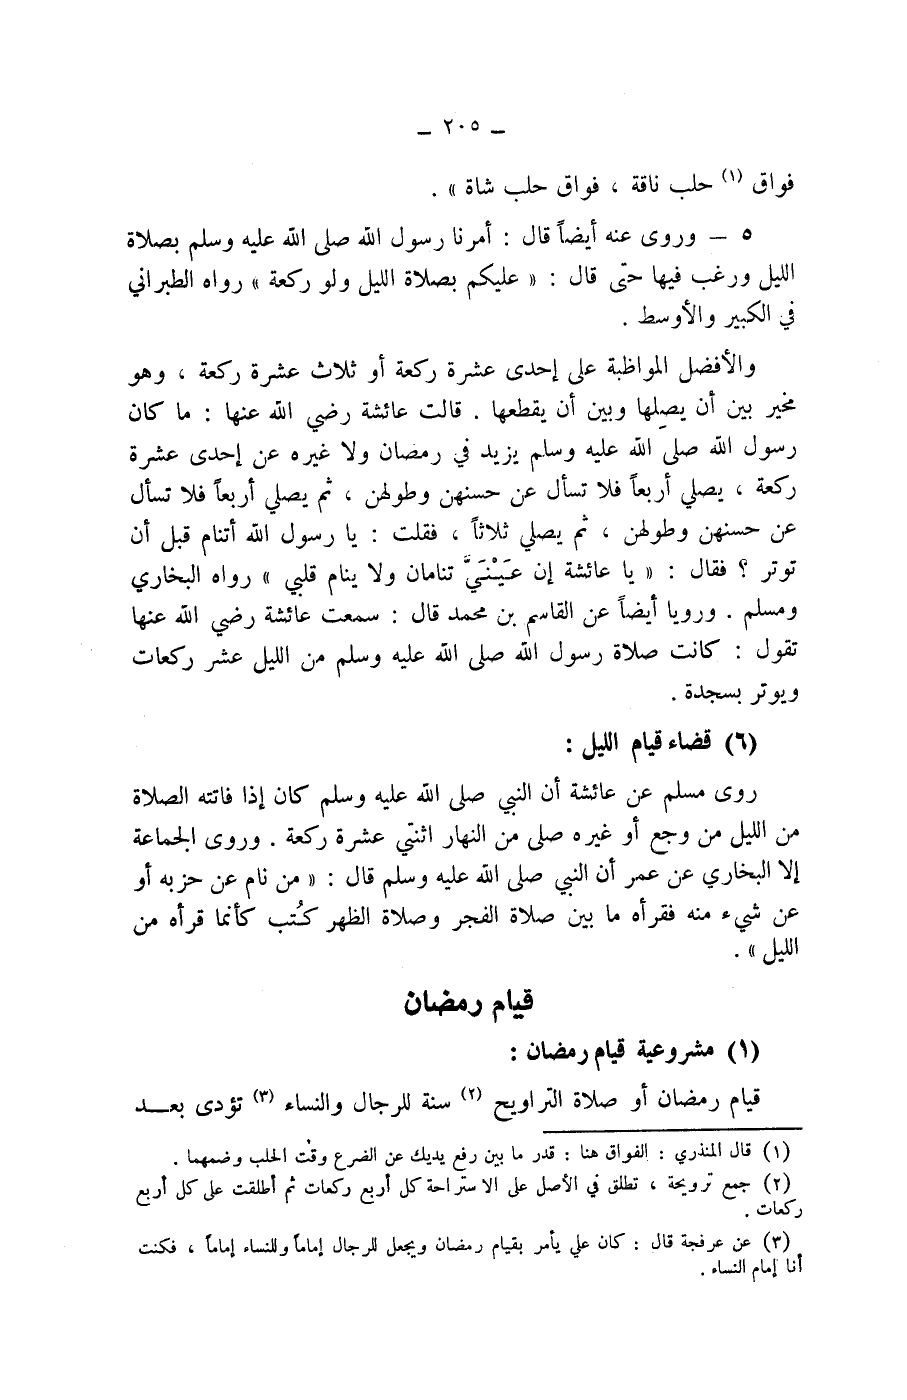 ـ ٢٠٥ ـ
فواق (١) حلب ناقة ، فواق حلب شاة » .
٥ ـ وروى عنه أيضاً قال : أمرنا رسول الله صلى الله عليه وسلم بصلاة
الليل ورغب فيها حتى قال : « عليكم بصلاة الليل ولو ركعة » رواه الطبراني
في الكبير والأوسط .
والأفضل المواظبة على إحدى عشرة ركعة أو ثلاث عشرة ركعة ، وهو
مخير بين أن يصلها وبين أن يقطعها . قالت عائشة رضي الله عنها : ما كان
رسول الله صلى الله عليه وسلم يزيد في رمضان ولا غيره عن إحدى عشرة
ركعة ، يصلي أربعاً فلا تسأل عن حسنهن وطولهن ، ثم يصلي أربعاً فلا تسأل
عن حسنهن وطولهن ، ثم يصلي ثلاثاً ، فقلت : يا رسول الله أتنام قبل أن
توتر ؟ فقال : « يا عائشة إن عَيْنَيَّ تنامان ولا ينام قلبي » رواه البخاري
ومسلم . ورويا أيضاً عن القاسم بن محمد قال : سمعت عائشة رضي الله عنها
تقول : كانت صلاة رسول الله صلى الله عليه وسلم من الليل عشر ركعات
ويوتر بسجدة .
(٦) قضاء قيام الليل :
روى مسلم عن عائشة أن النبي صلى الله عليه وسلم كان إذا فاتته الصلاة
من الليل من وجع أو غيره صلى من النهار اثنتي عشرة ركعة . وروى الجماعة
إلا البخاري عن عمر أن النبي صلى الله عليه وسلم قال : « من نام عن حزبه أو
عن شيء منه فقرأه ما بين صلاة الفجر وصلاة الظهر كُتب كأنما قرأه من
الليل » .
قيام رمضان
(١) مشروعية قيام رمضان :
قيام رمضان أو صلاة التراويح (٢) سنة للرجال والنساء (٣) تؤدى بعـــد
(١) قال المنذري : الفواق هنا : قدر ما بين رفع يديك عن الضرع وقت الحلب وضمهما .
(٢) جمع ترويحة ، تطلق في الأصل على الاستراحة كل أربع ركعات ثم أطلقت على كل أربع
ركعات .
(٣) عن عرفجة قال : كان علي يأمر بقيام رمضان ويجعل للرجال إماماً وللنساء إماماً ، فكنت
أنا إمام النساء .